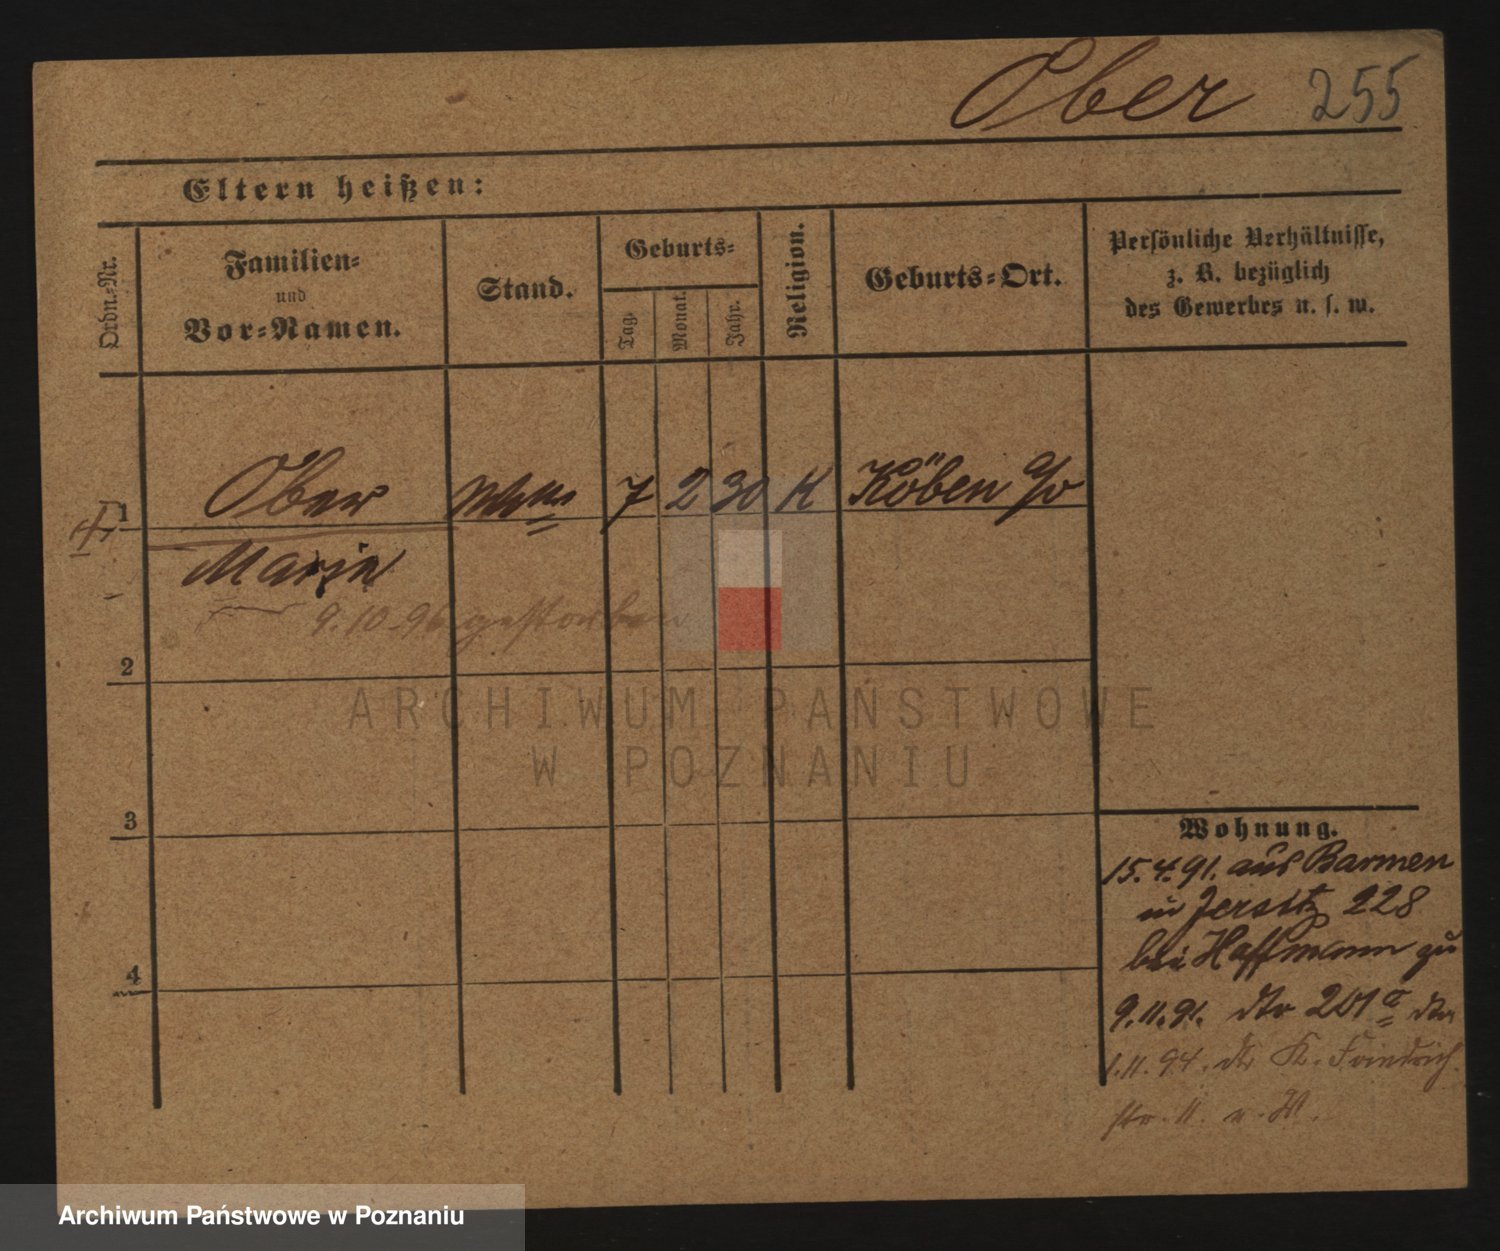 Ober 255
Eltern heißen:
Ordn.-Nr.
Familien-
und
Vor-Namen.
Stand.
Geburts-
Tag.
Monat.
Jahr.
Religion.
Geburts-Ort.
Persönliche Verhältnisse,
z. B. bezüglich
des Gewerbes u. s. w.
1 Ober 7 2 30 K Köben
Marie
9.10.96 gestorben
2
3
4
ARCHIWUM PAŃSTWOWE
W POZNANIU
Wohnung.
15.4.91. aus Barmen
in Jersitz 228
bei Hoffmann zu
9.11.91. dto 201a dto
1.11.94. dto K. Friedrich
str. 11. n. W.
Archiwum Państwowe w Poznaniu